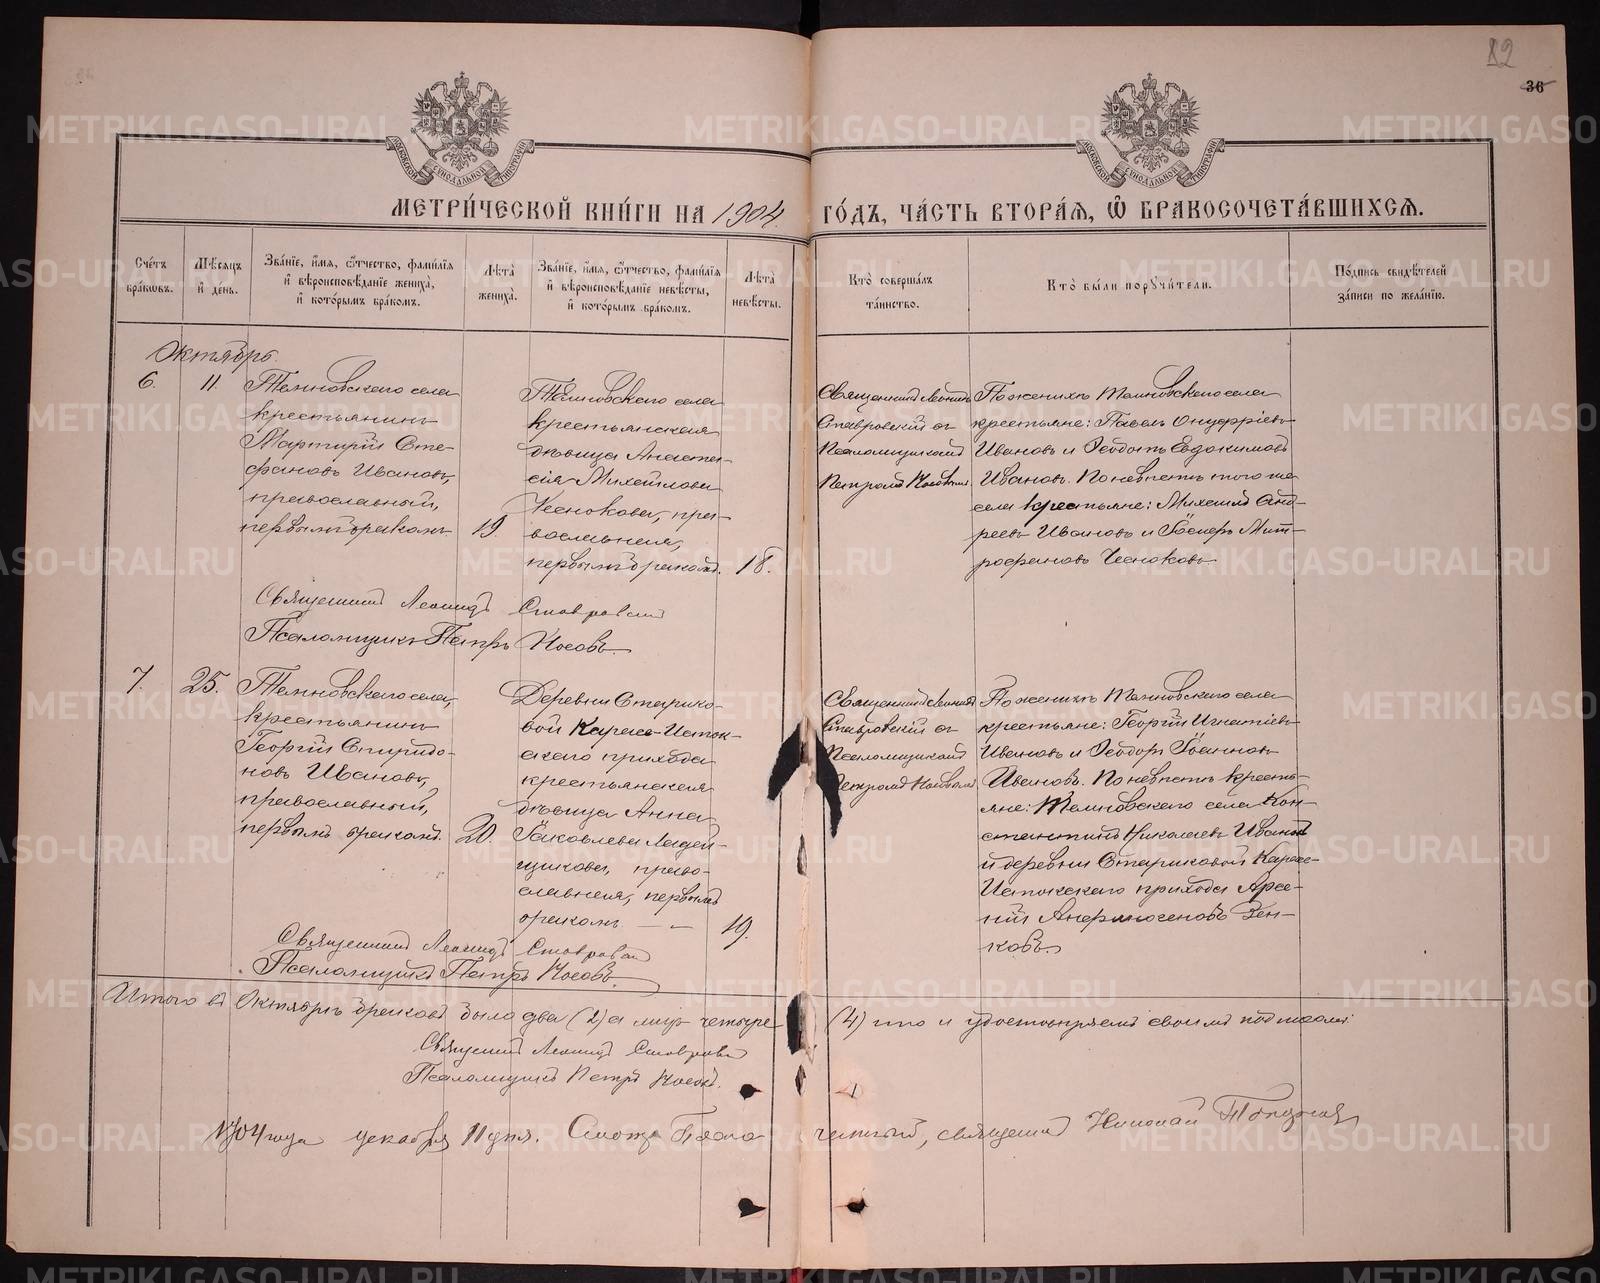 82
36
МЕТРИ́ЧЕСКОЙ КНИ́ГИ НА 1904 ГО́ДЪ, ЧА́СТЬ ВТОРА́Я, Ѽ БРАКОСОЧЕТА́ВШИХСЯ.
Сче́тъ бра́ковъ.
Мѣ́сяцъ и҆ де́нь.
Зва́нїе, и҆́мя, ѻ҆́тчество, фами́лїя и҆ вѣроисповѣ́данїе жениха̀, и҆ кото́рымъ бра́комъ.
Лѣ́та жениха̀.
Зва́нїе, и҆́мя, ѻ҆́тчество, фами́лїя и҆ вѣроисповѣ́данїе невѣ́сты, и҆ кото́рымъ бра́комъ.
Лѣ́та невѣ́сты.
Кто̀ соверша́лъ та́инство.
Кто̀ бы́ли порꙋчи́тели.
По́дпись свидѣ́телей за́писи по жела́нїю.
Октябрь.
6.
11.
Темновскаго села
крестьянинъ
Мартирій Сте-
фановъ Ивановъ,
православный,
первымъ бракомъ
19.
Темновского села
крестьянская
дѣвица Анаста-
сія Михайлова
Чеснокова, пра-
вославная,
первымъ бракомъ.
18.
Священникъ Леонидъ
Ставровскій съ
Псаломщикомъ
Петромъ Носовымъ
По женихѣ Темновскаго села
крестьяне: Павелъ Онуфріевъ
Ивановъ и Ѳеодотъ Евдокимовъ
Ивановъ. По невѣстѣ того же
села крестьяне: Михаилъ Анд-
реевъ Ивановъ и Гаспаръ Мит-
рофановъ Чесноковъ.
Священникъ Леонидъ Ставровскій
Псаломщикъ Петръ Носовъ.
7.
25.
Темновскаго села,
крестьянинъ
Георгій Спиридо-
новъ Ивановъ,
православный,
первымъ бракомъ.
20.
Деревни Старико-
вой Карасе-Исток-
скаго прихода
крестьянская
дѣвица Анна
Іаковлева Ладей-
щикова, право-
славная, первымъ
бракомъ
19.
Священникъ Леонидъ
Ставровскій съ
Псаломщикомъ
Петромъ Носовымъ
По женихѣ Темновскаго села
крестьяне: Георгій Игнатіевъ
Ивановъ и Ѳеодоръ Іоанновъ
Ивановъ. По невѣстѣ кресть-
яне: Темновскаго села Кон-
стантинъ Николаевъ Ивановъ
и деревни Стариковой Карасе-
Истокскаго прихода Арсе-
ній Анфиногеновъ Зен-
ковъ.
Священникъ Леонидъ Ставровскій
Псаломщикъ Петръ Носовъ.
Итого въ Октябрѣ браковъ было два (2) а лицъ четыре (4) что и удостовѣряемъ своими подписями:
Священникъ Леонидъ Ставровскій
Псаломщикъ Петръ Носовъ.
1904 года декабря 11 дня. Смотр. Благочинный, священникъ Николай
METRIKI.GASO-URAL.RU